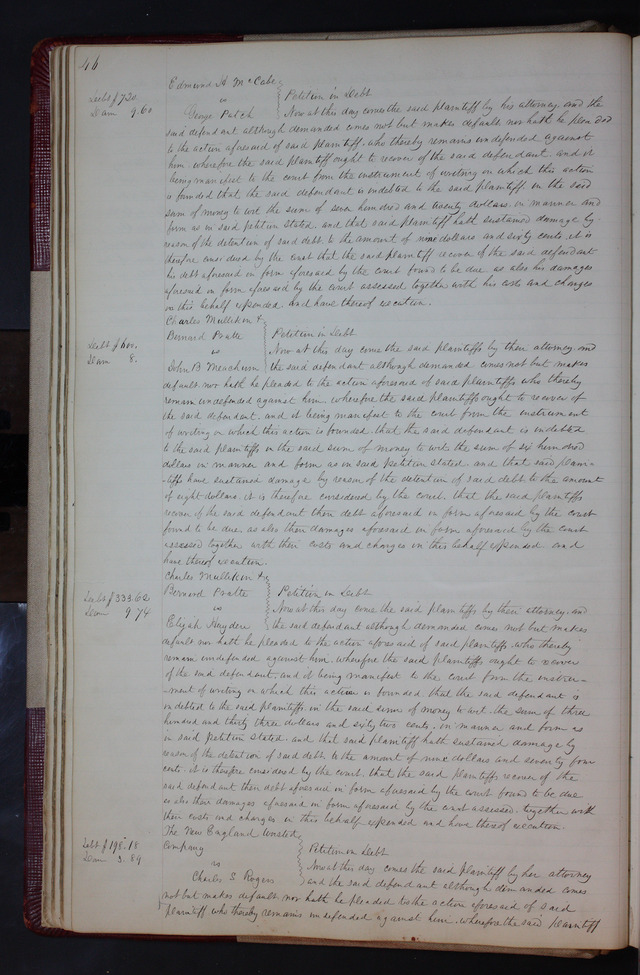 46
Edmund A McCabe
Debt $720
vs
Petition in Debt
Dam 9.60
George Patch
Now at this day comes the said plaintiff by his attorney and the
said defendant although demanded comes not but makes default nor hath he pleaded
to the action aforesaid of said plaintiff. who thereby remains undefended against
him wherefore the said plaintiff ought to recover of the said defendant. and it
being manifest to the court from the instrument of writing on which this action
is founded that the said defendant is indebted to the said plaintiff in the said
sum of money to wit the sum of seven hundred and twenty dollars. in manner and
form as in said petition stated. and that said plaintiff hath sustained damage by
reason of the detention of said debt to the amount of nine dollars and sixty cents. it is
therefore considered by the court that the said plaintiff recover of the said defendant
his debt aforesaid in form aforesaid by the court found to be due as also his damages
aforesaid in form aforesaid by the court assessed together with his costs and charges
in this behalf expended. and have thereof execution.
Charles Mullikin &
Bernard Pratte
Petition in Debt
Debt $600.
vs
Now at this day come the said plaintiffs by their attorney and
Dam 8.
John B Meachum
the said defendant although demanded comes not but makes
default nor hath he pleaded to the action aforesaid of said plaintiffs who thereby
remain undefended against him. wherefore the said plaintiffs ought to recover of
the said defendant. and it being manifest to the court from the instrument
of writing on which this action is founded. that the said defendant is indebted
to the said plaintiffs in the said sum of money to wit the sum of six hundred
dollars in manner and form as in said petition stated. and that said plain-
-tiffs have sustained damage by reason of the detention of said debt to the amount
of eight dollars. it is therefore considered by the court. that the said plaintiffs
recover of the said defendant their debt aforesaid in form aforesaid by the court
found to be due. as also their damages aforesaid in form aforesaid by the court
assessed together with their costs and charges in this behalf expended. and
have thereof execution.
Charles Mullikin &
Debt $333.62
Bernard Pratte
Petition in Debt
Dam 9 74
vs
Now at this day come the said plaintiffs by their attorney. and
Elijah Hayden
the said defendant although demanded comes not but makes
default nor hath he pleaded to the action aforesaid of said plaintiffs. who thereby
remain undefended against him. wherefore the said plaintiffs ought to recover
of the said defendant. and it being manifest to the court from the instru-
-ment of writing on which this action is founded that the said defendant is
indebted to the said plaintiffs in the said sum of money to wit. the sum of three
hundred and thirty three dollars and sixty two cents. in manner and form as
in said petition stated. and that said plaintiff hath sustained damage by
reason of the detention of said debt to the amount of nine dollars and seventy four
cents. it is therefore considered by the court. that the said plaintiffs recover of the
said defendant their debt aforesaid in form aforesaid by the court found to be due
as also their damages aforesaid in form aforesaid by the court assessed. together with
their costs and charges in this behalf expended and have thereof execution.
The New England
Debt $198.18
Company
Petition in Debt
Dam 3.89
vs
Now at this day comes the said plaintiff by her attorney
Charles S Rogers
and the said defendant although demanded comes
not but makes default nor hath he pleaded to the action aforesaid of said
plaintiff who thereby remains undefended against him. wherefore the said plaintiff